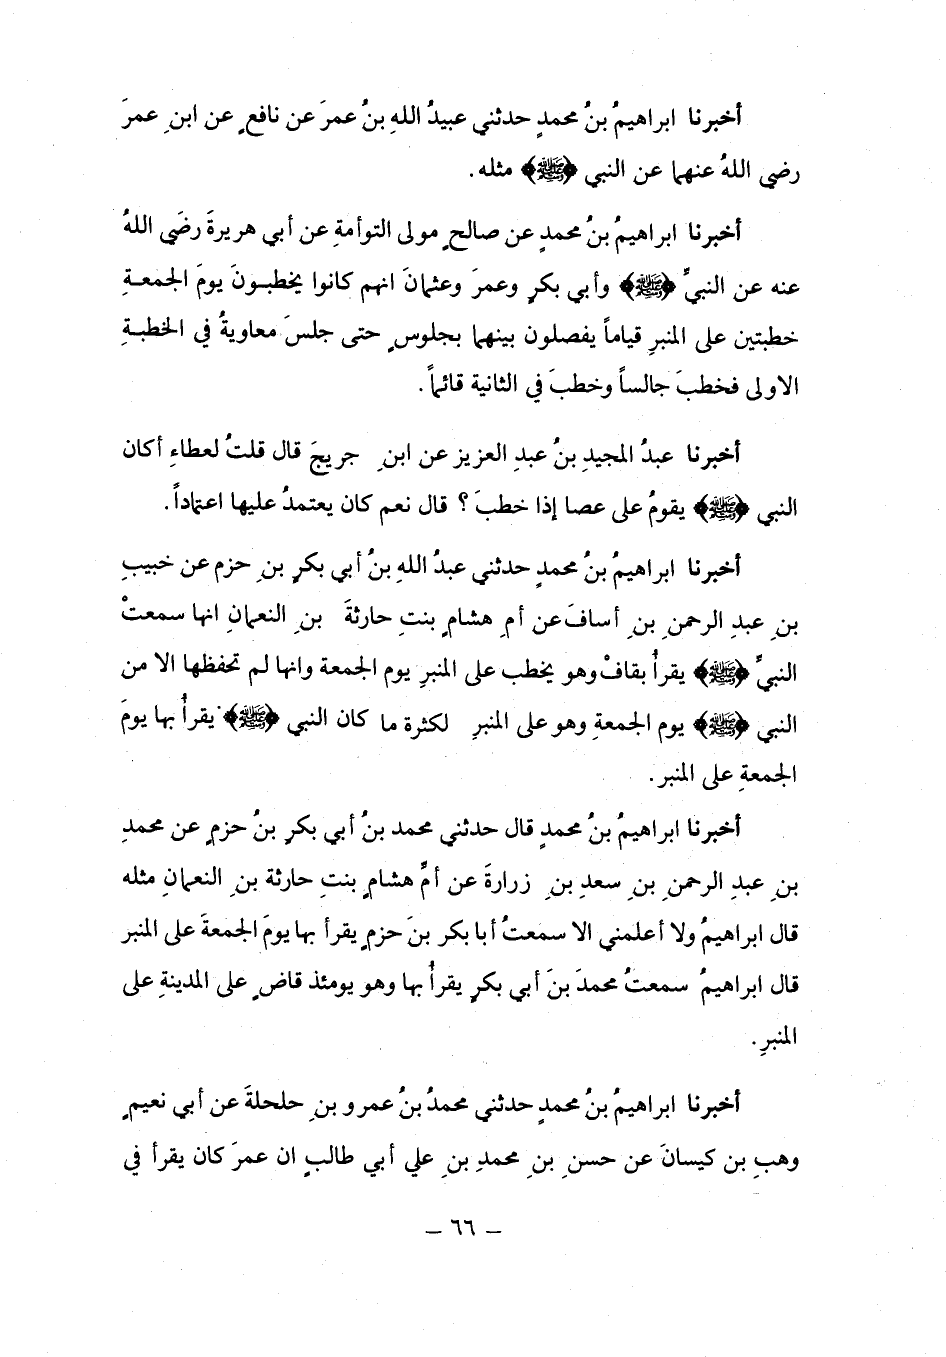 أخبرنا ابراهيمُ بنُ محمدٍ حدثني عبيدُ اللهِ بنُ عمرَ عن نافعٍ عن ابنِ عمرَ
رضي اللهُ عنهما عن النبي ﴿ﷺ﴾ مثله.
أخبرنا ابراهيمُ بنُ محمدٍ عن صالحٍ مولى التوأمةِ عن أبي هريرةَ رضَي اللهُ
عنه عن النبيِّ ﴿ﷺ﴾ وأبي بكرٍ وعمرَ وعثمانَ انهم كانوا يخطبـونَ يومَ الجمعـةِ
خطبتين على المنبرِ قياماً يفصلون بينهما بجلوسٍ حتى جلسَ معاويةُ في الخطبـةِ
الاولى فخطبَ جالساً وخطبَ في الثانية قائماً.
أخبرنا عبدُ المجيدِ بنُ عبدِ العزيز عن ابنِ جريجَ قال قلتُ لعطاءِ أكان
النبي ﴿ﷺ﴾ يقومُ على عصا إذا خطبَ؟ قال نعم كان يعتمدُ عليها اعتماداً.
أخبرنا ابراهيمُ بنُ محمدٍ حدثني عبدُ اللهِ بنُ أبي بكرٍ بنِ حزم عن خبيبِ
بنِ عبدِ الرحمنِ بنِ أسافَ عن أمِ هشامٍ بنتِ حارثةَ بنِ النعمانِ انها سمعتْ
النبيِّ ﴿ﷺ﴾ يقرأُ بقافْ وهو يخطب على المنبرِ يوم الجمعة وانها لم تحفظها الا من
النبي ﴿ﷺ﴾ يوم الجمعةِ وهو على المنبرِ لكثرة ما كان النبي ﴿ﷺ﴾ يقرأُ بها يومَ
الجمعةِ على المنبر.
أخبرنا ابراهيمُ بنُ محمدٍ قال حدثني محمد بنُ أبي بكرِ بنُ حزمٍ عن محمدِ
بنِ عبدِ الرحمنِ بنِ سعدِ بنِ زرارةَ عن أمِّ هشامٍ بنتِ حارثة بنِ النعمانِ مثله
قال ابراهيمُ ولا أعلمني الا سمعتُ أبا بكر بنَ حزمٍ يقرأ بها يومَ الجمعةَ على المنبر
قال ابراهيمُ سمعتُ محمدَ بنَ أبي بكرٍ يقرأُ بها وهو يومئذ قاضٍ على المدينةِ على
المنبرِ.
أخبرنا ابراهيمُ بنُ محمدٍ حدثني محمدُ بنُ عمرو بنِ حلحلةَ عن أبي نعيمٍ
وهبِ بن كيسانَ عن حسنِ بنِ محمدِ بنِ علي أبي طالبٍ ان عمرَ كان يقرأ في
– ٦٦ –